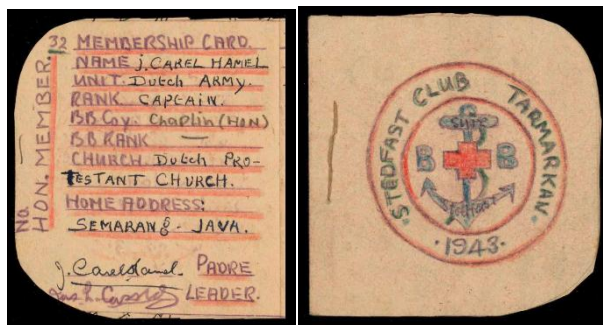 32 MEMBERSHIP CARD.
NAME J. CAREL HAMEL
UNIT. Dutch Army.
RANK CAPTAIN.
BB Coy. Chaplin (HON)
BB RANK —
CHURCH. Dutch PRO-
TESTANT CHURCH.
HOME ADDRESS:
SEMARANG - JAVA.
No.
HON. MEMBER
J. Carel Hamel. PADRE
LEADER.
STEDFAST CLUB TARMARKAN.
SURE
B B
·1943·